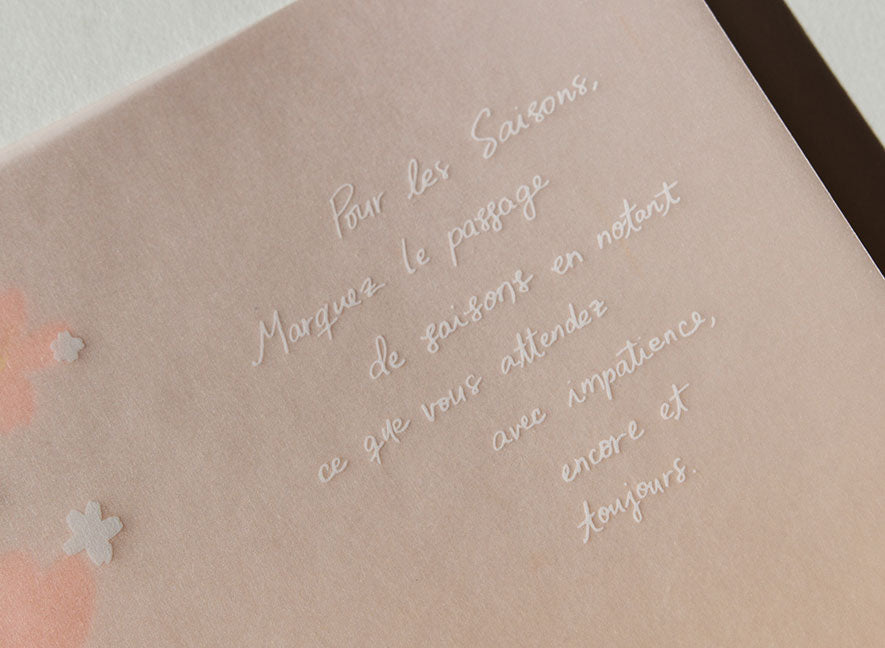 Pour les Saisons,
Marquez le passage
de saisons en notant
ce que vous attendez
avec impatience,
encore et
toujours.